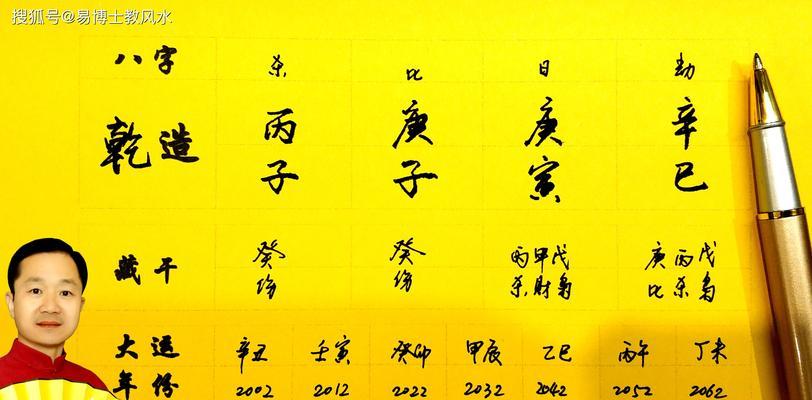 搜狐号@易博士教风水
八字 杀 比 日 劫
乾造 丙 庚 庚 辛
子 子 寅 巳
藏干 癸 癸 丙甲戊 庚丙戊
伤 伤 杀财枭 比杀枭
大运 辛丑 壬寅 癸卯 甲辰 乙巳 丙午 丁未
年份 2002 2012 2022 2032 2042 2052 2062